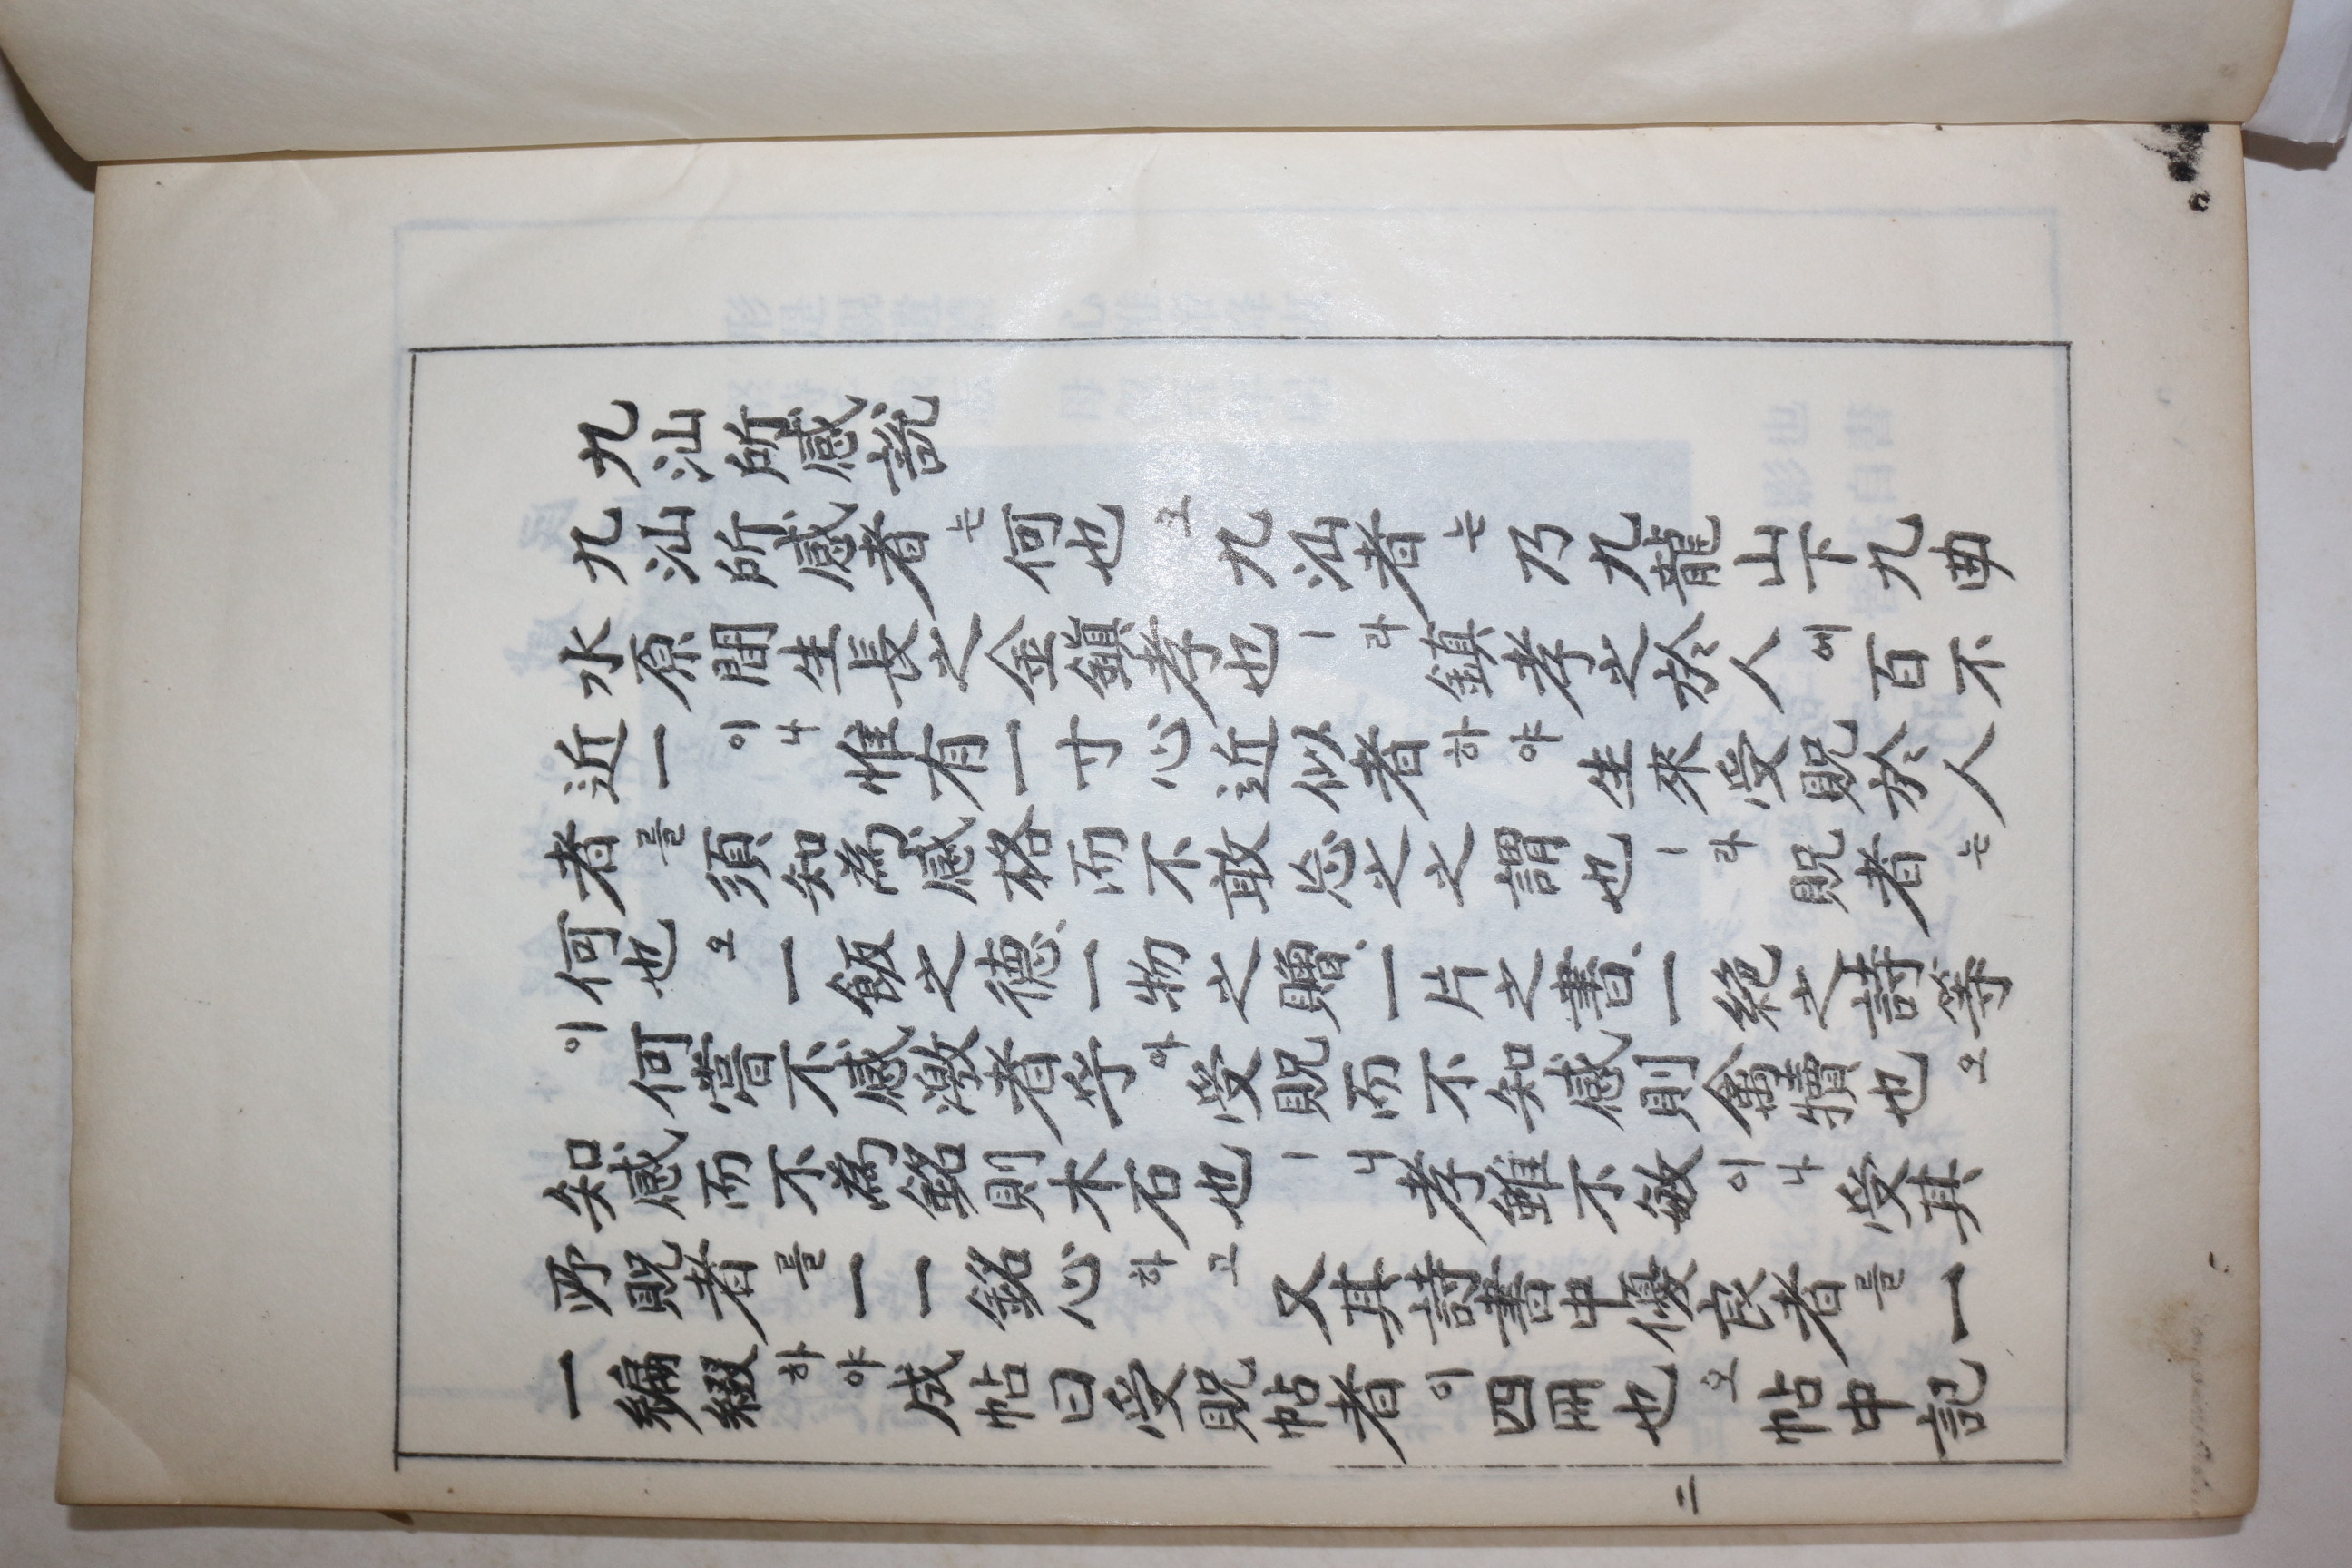 九汕所感說
九汕所感者는何也오九汕者는乃九龍山下九曲
水原間生長之金鎭孝也ㅣ라鎭孝之於人에百不
近一이나惟有一寸心近似者하야生來受貺於人
者를須知為感格而不敢忘之之謂也ㅣ라貺者는
何也오一飯之德、一物之贈、一片之書、一絶之詩等
이何嘗不感激者乎아受貺而不知感則禽犢也오
知感而不為銘則木石也ㅣ니孝雖不敏이나受其
所貺者를一一銘心하고又其詩書中優良者를一
一編綴하야成帖曰受貺帖者이四冊也오帖中記
二